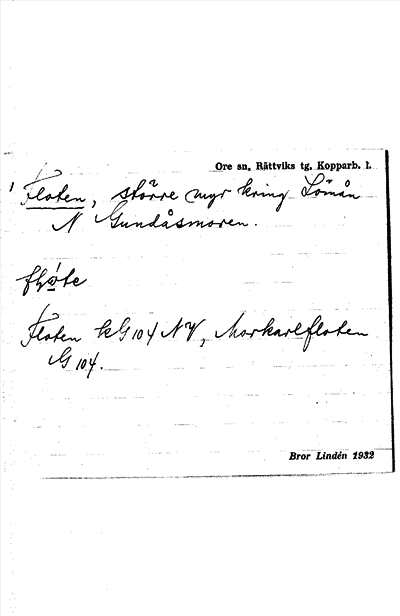 Ore sn, Rättviks tg, Kopparb. l.
1 Floten, större myr kring Lömån
N Gundåsmoren.
Floten kG 104 NV, Morkarlfloten
G 104.
Bror Lindén 1932